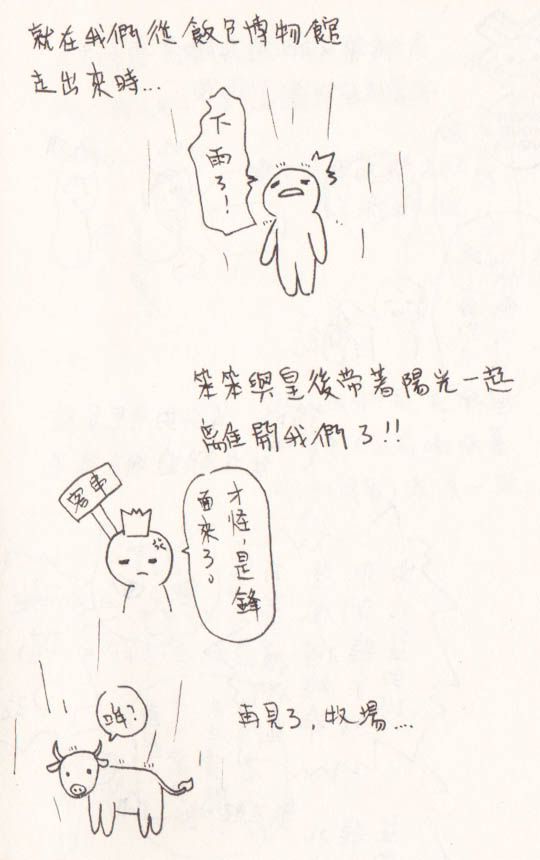 就在我們從飯包博物館
走出來時...
下雨了!
笨笨與皇後帶著陽光一起
離開我們了!!
客串
才怪,是鋒
面來了。
哞?
再見了,牧場...